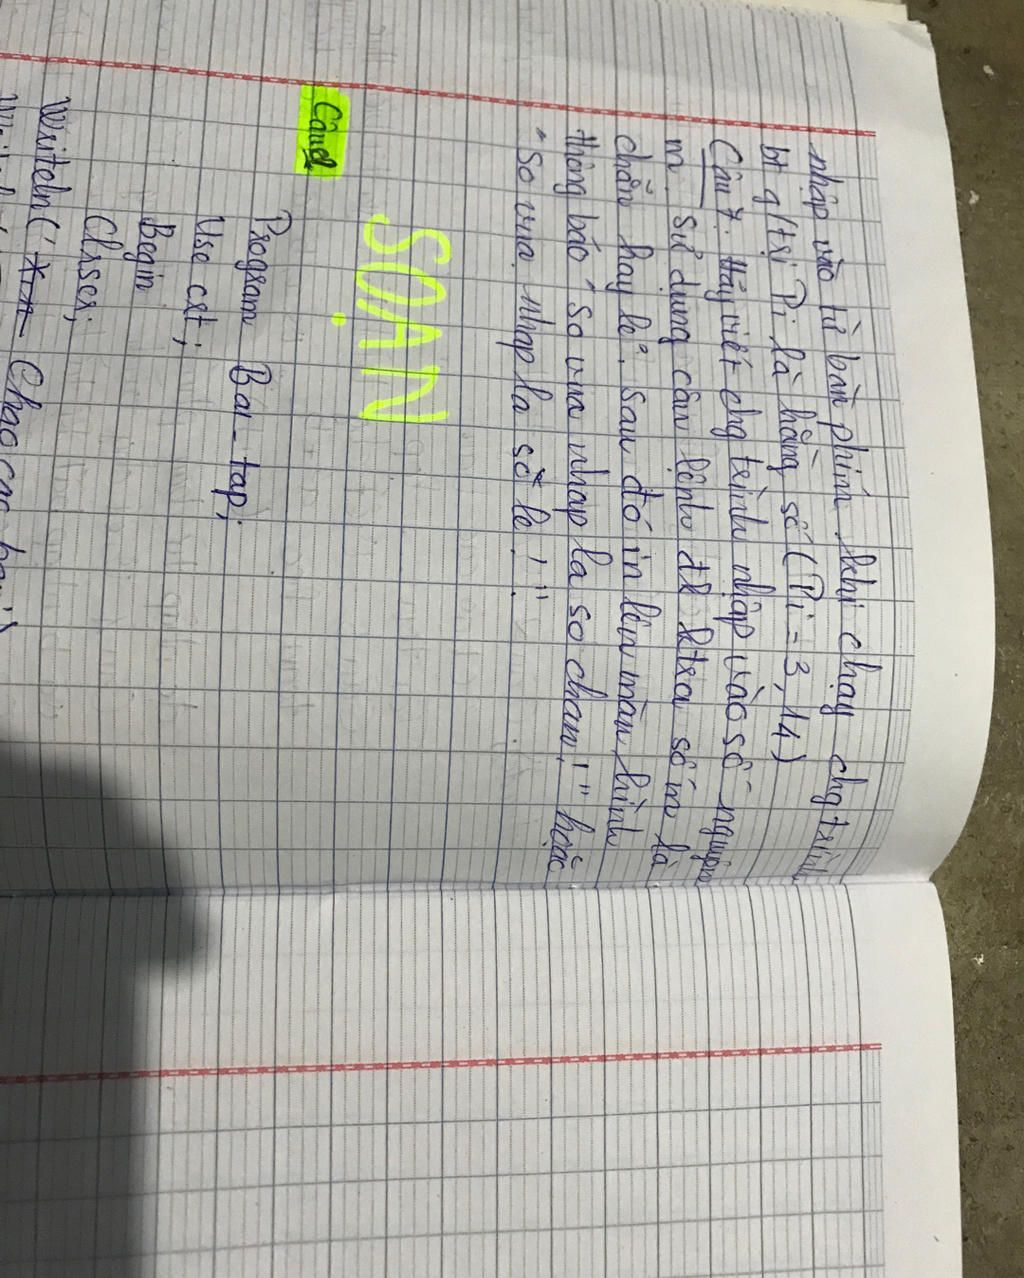 nhập vào từ bàn phím khi chạy chg trình
bt g/trị Pi là hằng số (Pi = 3,14)
Câu 7. Hãy viết chg trình nhập vào số nguyên
m. sử dụng câu lệnh để ktra số m là
chẵn hay lẻ. Sau đó in lên màn hình
thông báo "So vua nhap la so chan!" hoặc
"So vua nhap la số le!".
SOẠN
Câu 1
Program Bai-tap;
Use crt;
Begin
Clrscr;
Writeln('Chao cac ban')